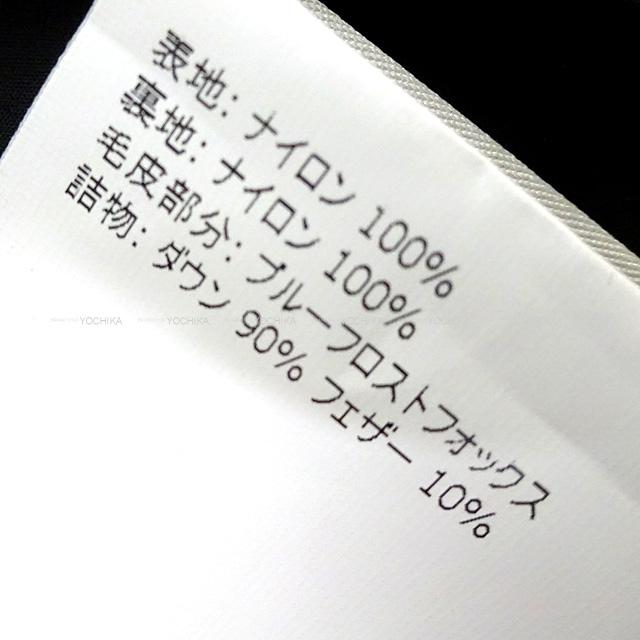 表地: ナイロン 100%
裏地: ナイロン 100%
毛皮部分: ブルーフロストフォックス
詰物: ダウン 90% フェザー 10%
YOCHIKA YOCHIKA YOCHIKA